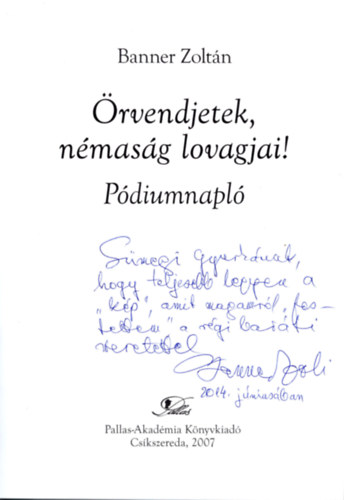 Banner Zoltán
Örvendjetek,
némaság lovagjai!
Pódiumnapló
Sümegi Gyurkának,
hogy teljesebb legyen a
„kép”, amit magamról „fes-
tettem” a régi baráti
szeretettel
Banner Zoli
2014. júniusában
Pallas
Pallas-Akadémia Könyvkiadó
Csíkszereda, 2007